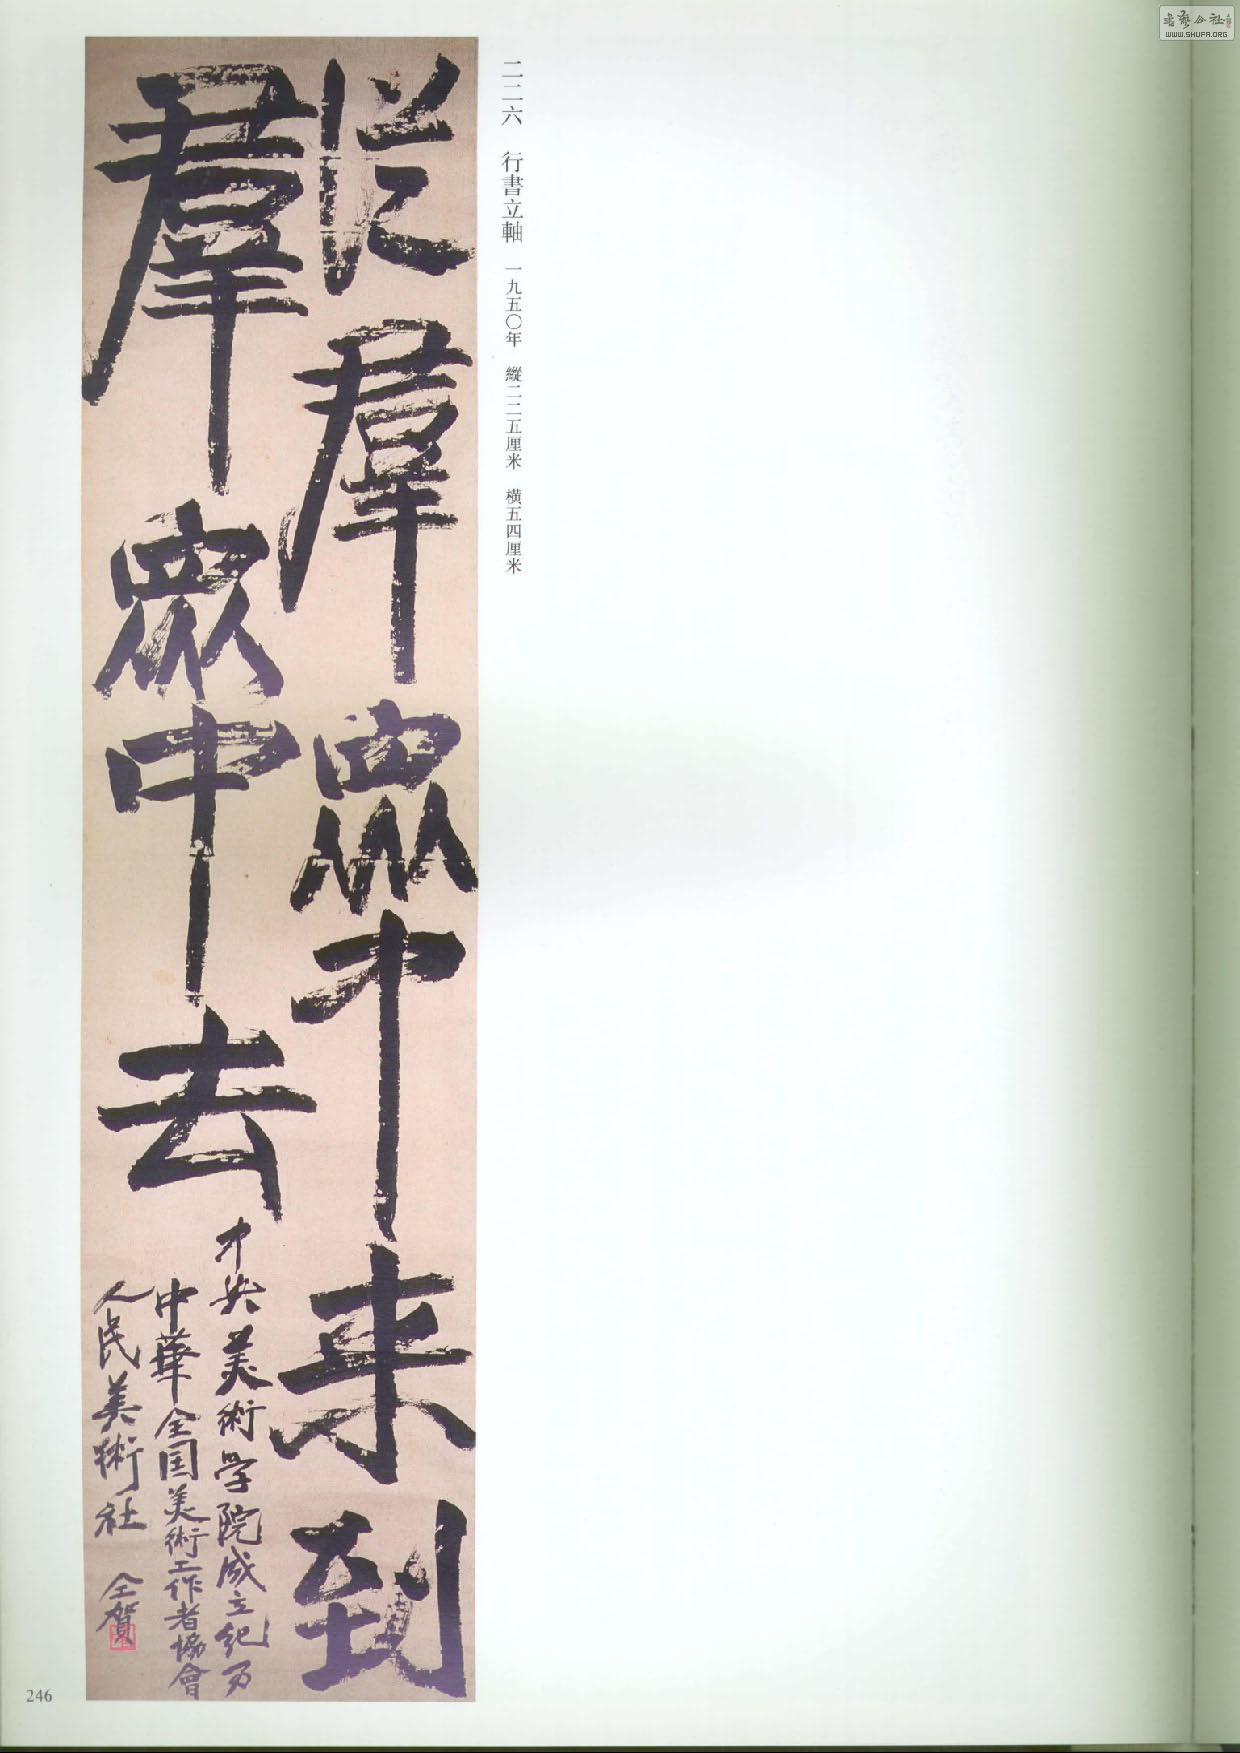 从羣眾中来到
羣眾中去
中央美術学院成立紀
中華全国美術工作者協會
人民美術社 仝賀
二二六 行書立軸 一九五〇年 縱二二五厘米 橫五四厘米
246
WWW.SHUFA.ORG